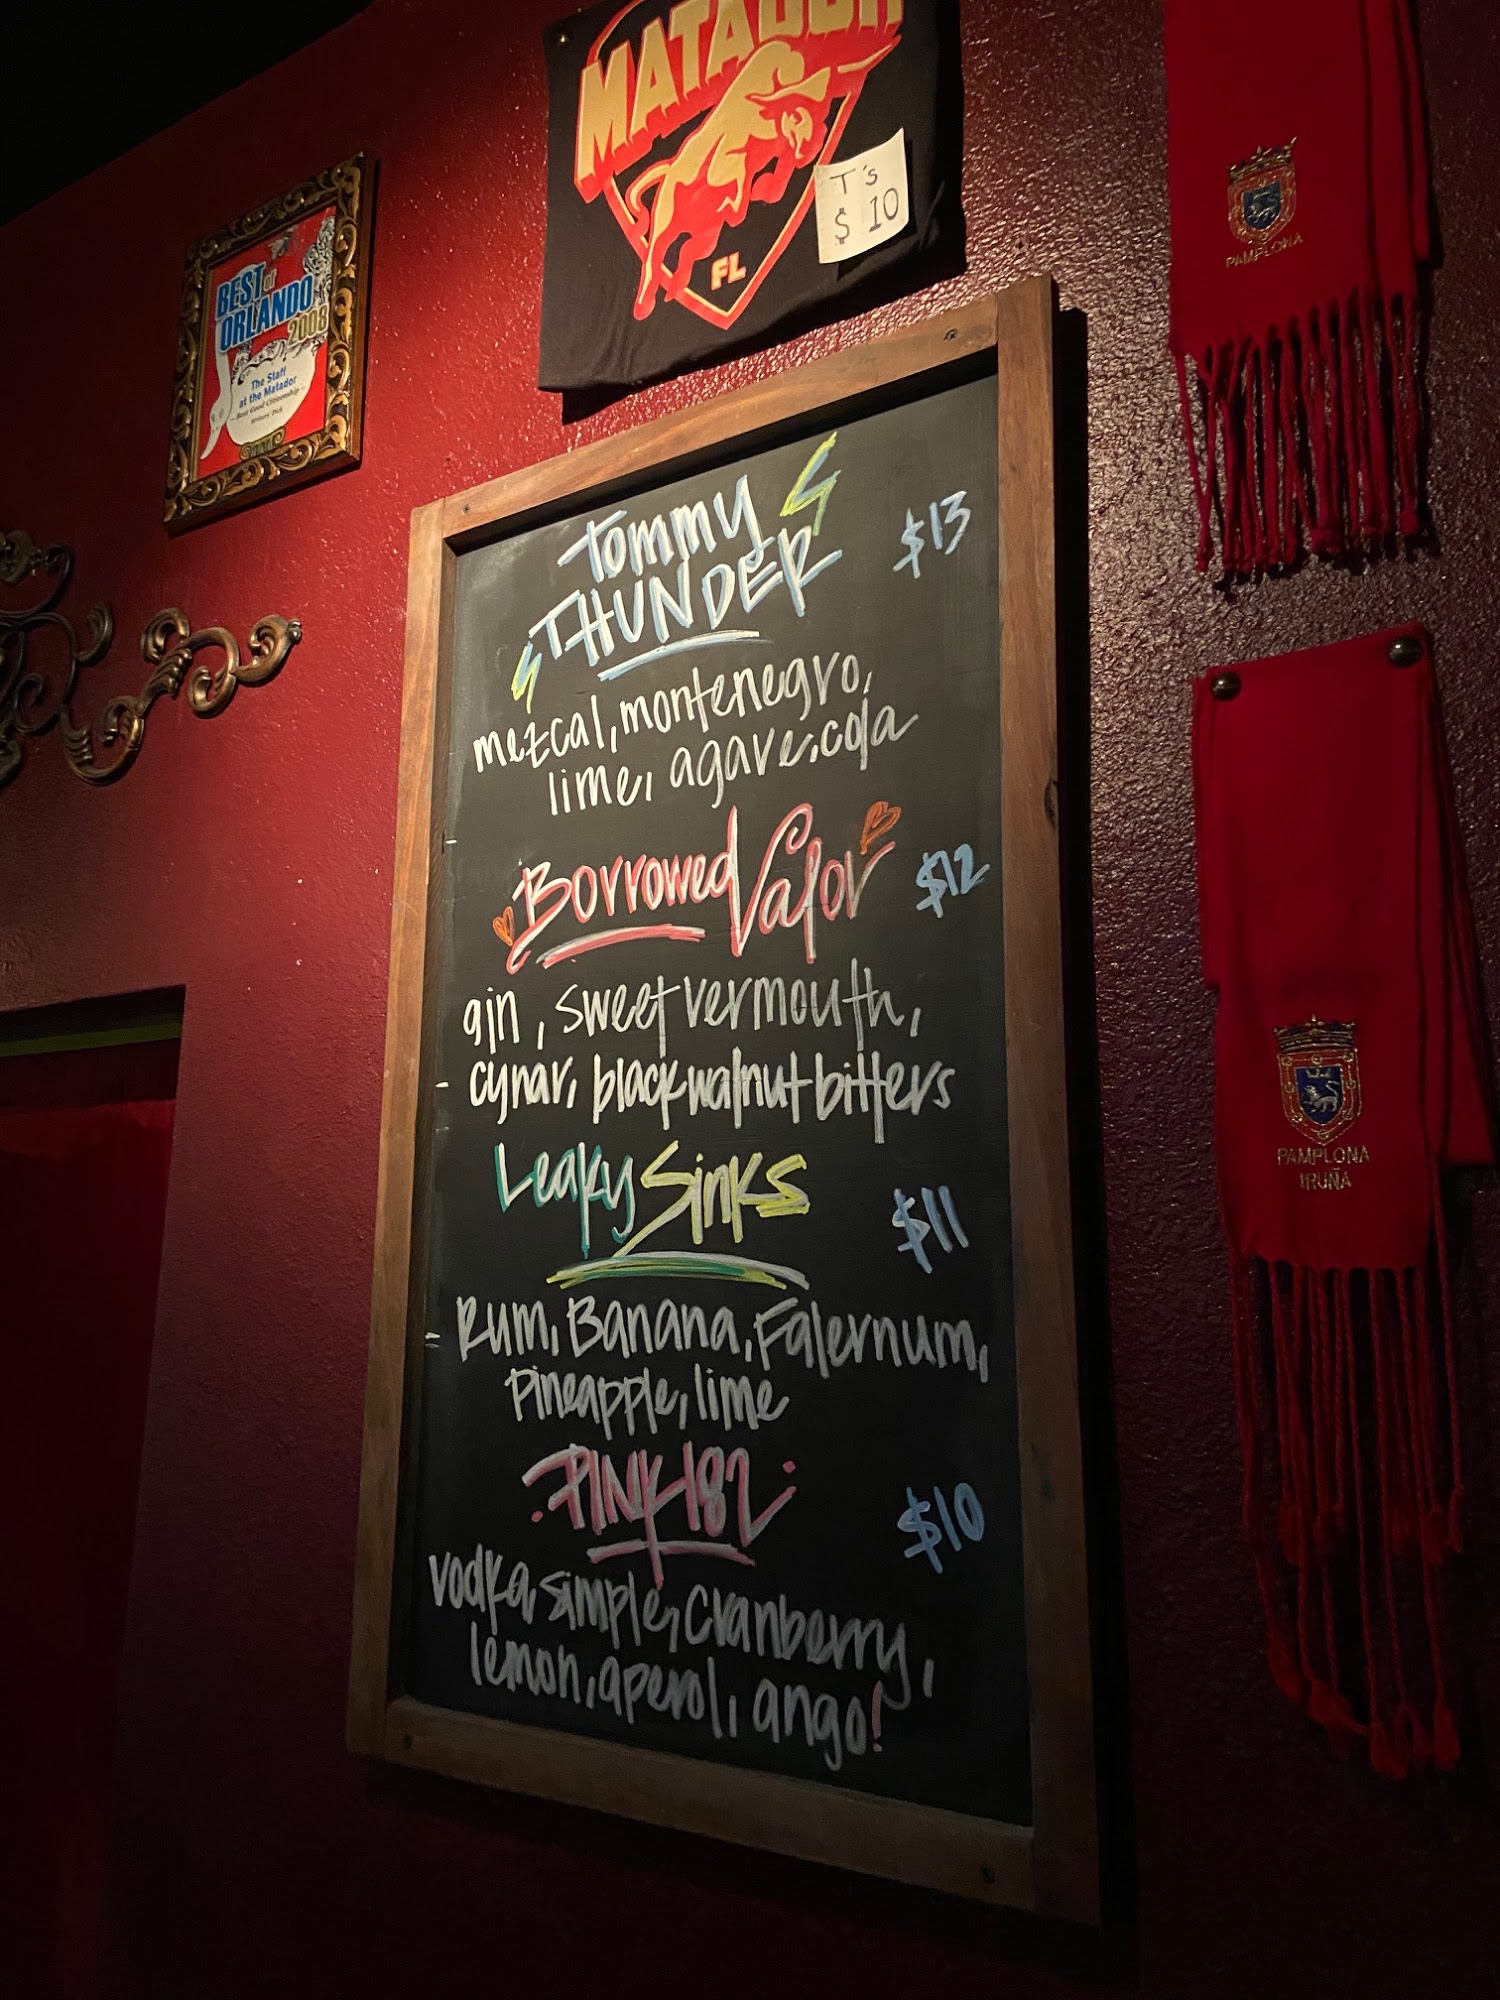 MATADOR
FL
T's
$10
BEST of
ORLANDO
2008
The Staff
at the Matador
Best Good Citizenship
Writers' Pick
PAMPLONA
Tommy
THUNDER
$13
mezcal, montenegro,
lime, agave, cola
Borrowed Valor
$12
gin, sweet vermouth,
cynar, black walnut bitters
Leaky Sinks
$11
Rum, Banana, Falernum,
Pineapple, lime
PINK 182
$10
vodka, simple, cranberry,
lemon, aperol, ango!
PAMPLONA
IRUÑA